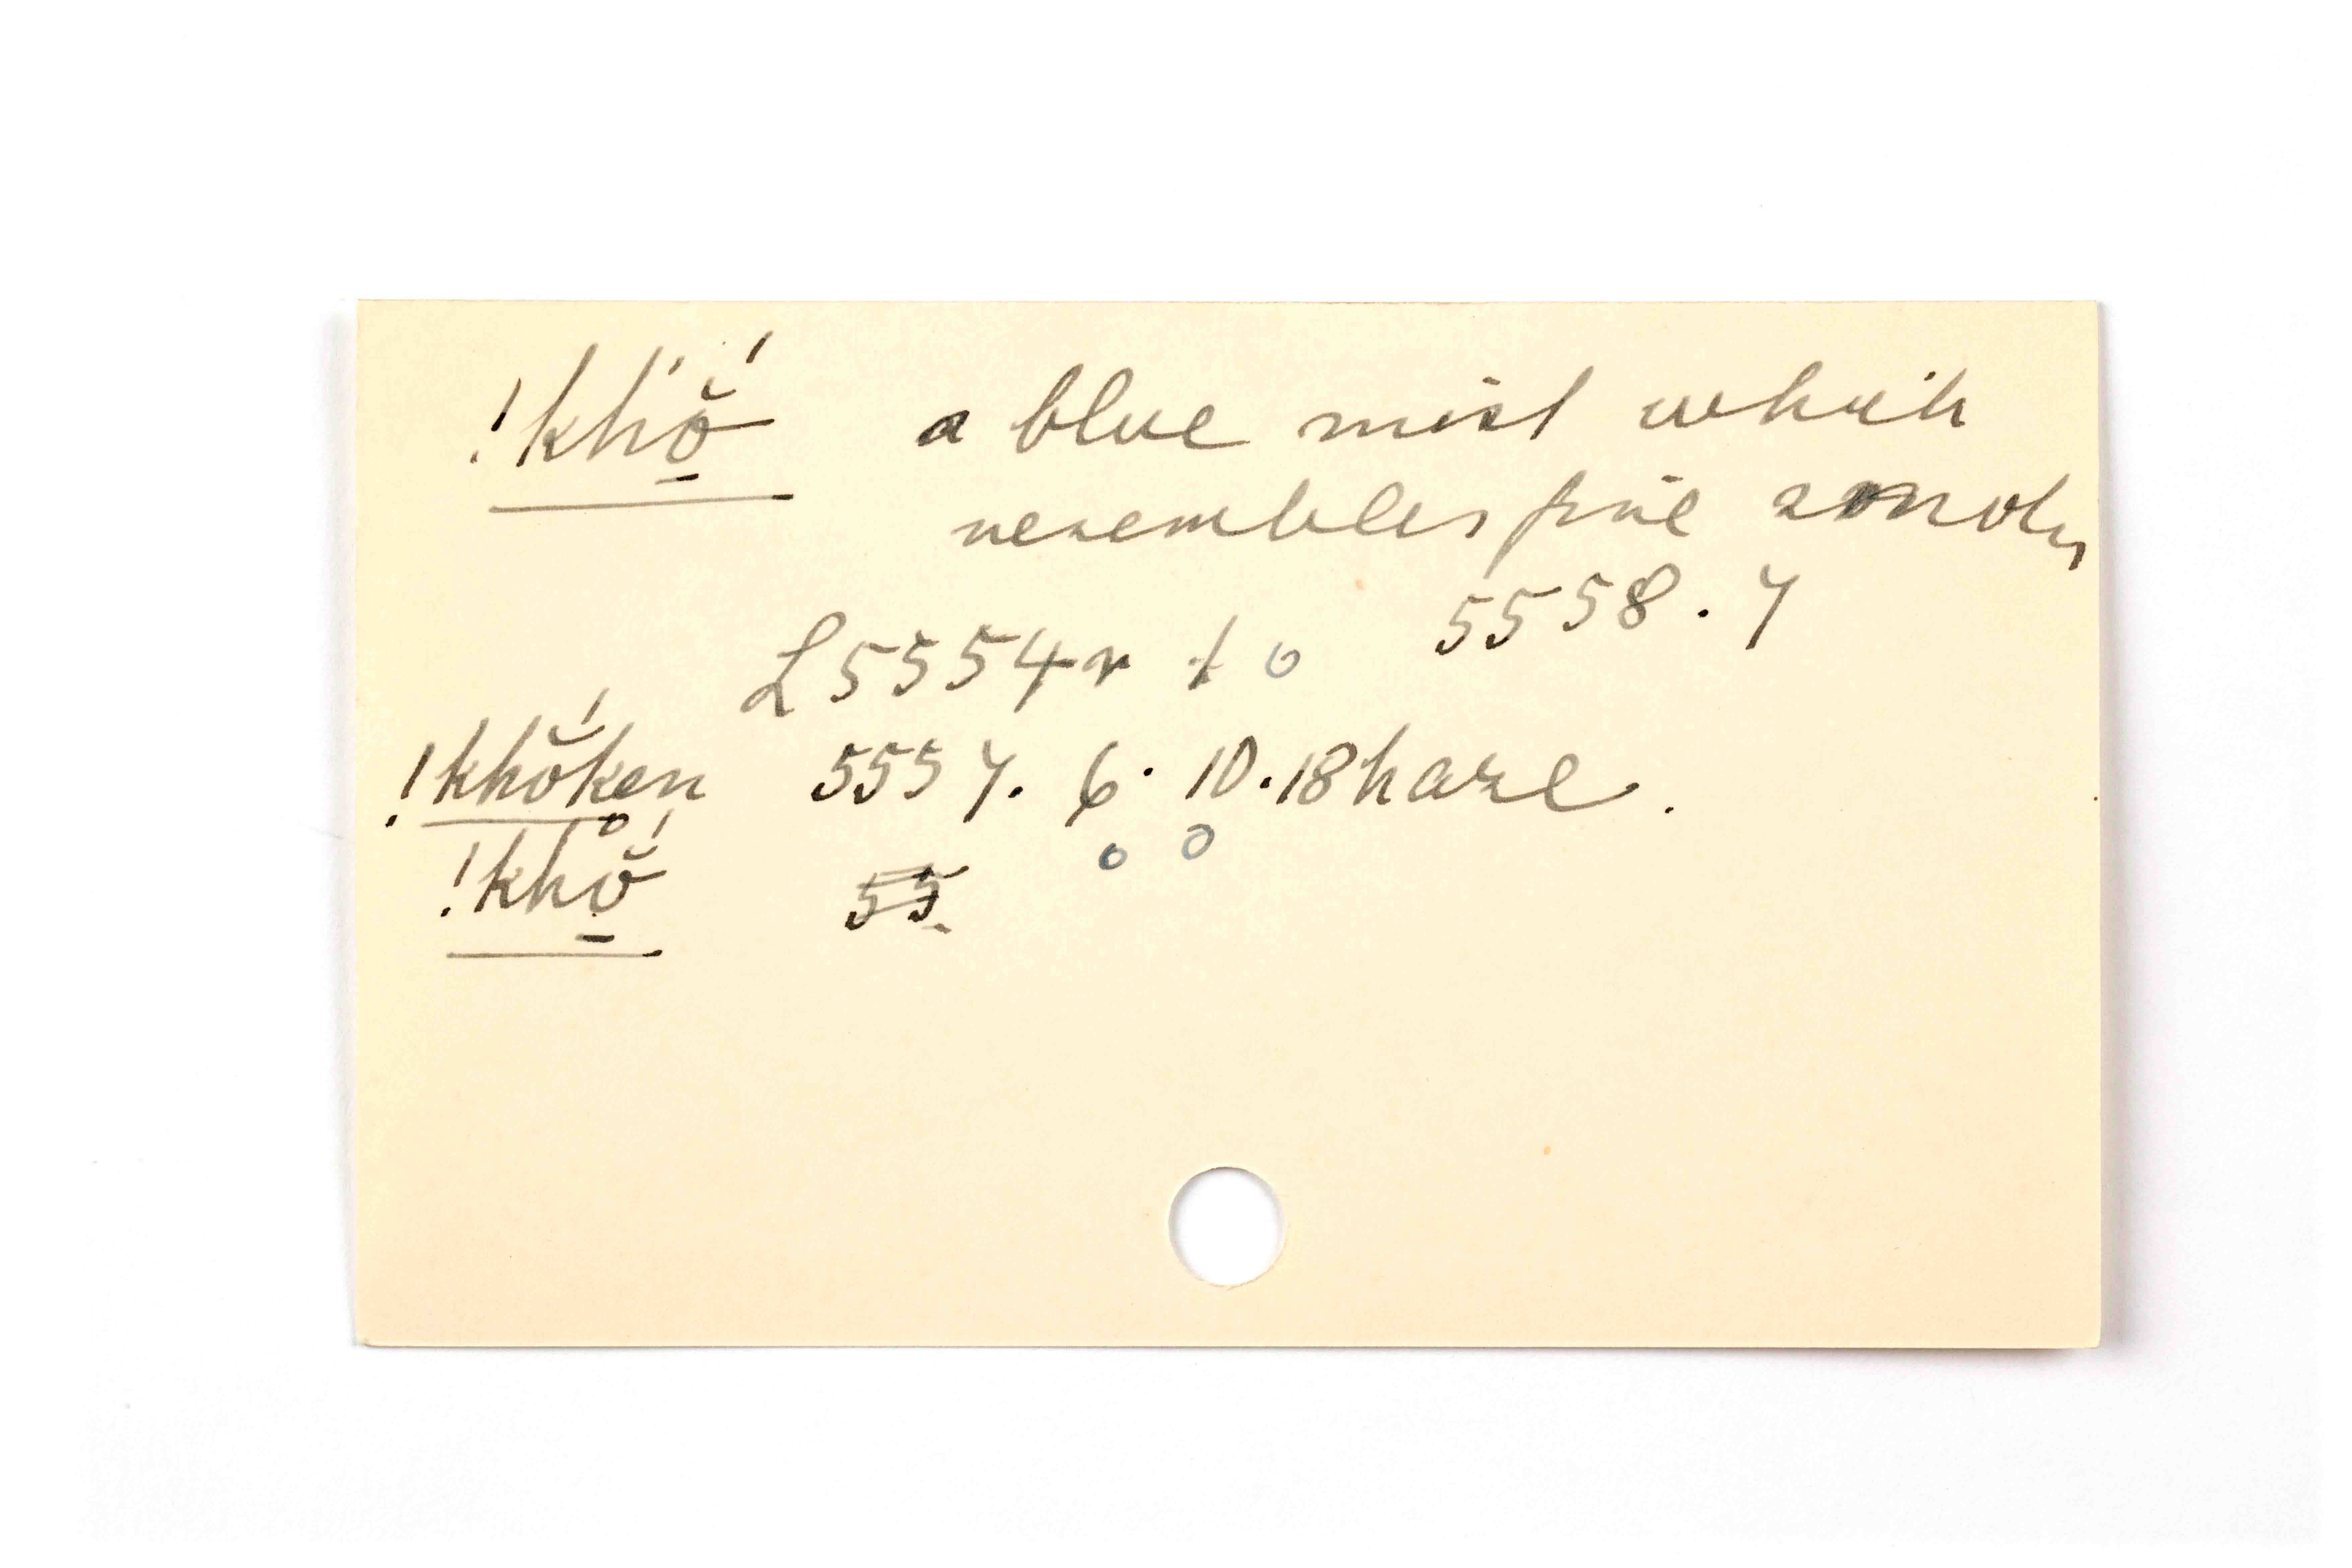 !khŏ́ a blue mist which
resembles fine sand
5558.7
L5554r to
!khŏ́ken 5557. 6. 10. 18 haze.
!khŏ́ 55